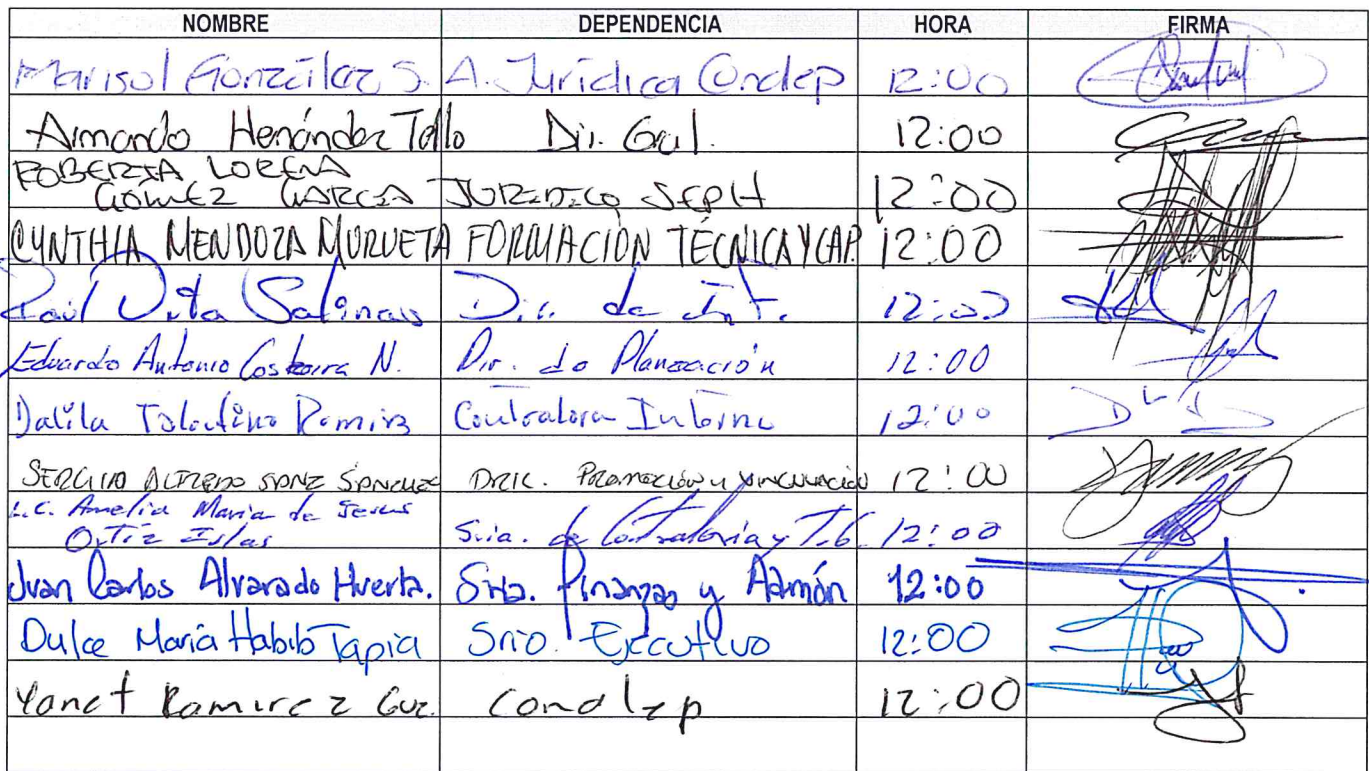 NOMBRE DEPENDENCIA HORA FIRMA
Marisol González S. A. Jurídica Conalep 12:00
Armando Hernández Tello Dir. Gral. 12:00
ROBERTA LORENA
GÓMEZ GARCIA JURIDICO SEPH 12:00
CYNTHIA MENDOZA MURUETA FORMACIÓN TÉCNICA Y CAP. 12:00
Raúl Salinas Dir. de 12:00
Eduardo Antonio N. Dir. de Planeación 12:00
Dalila Tolentino Ramirz Contralora Interna 12:00
SERGIO ALFREDO SANZ SÁNCHEZ Promoción y vinculación 12:00
L.C. Amelia Maria de Jesus
Ortiz Islas Sria. de Contraloria y T.G. 12:00
Juan Carlos Alvarado Huerta. Sria. Finanzas y Admón 12:00
Dulce María Habib Tapia Srio. Ejecutivo 12:00
Yanet Ramirez Gu Conalep 12:00